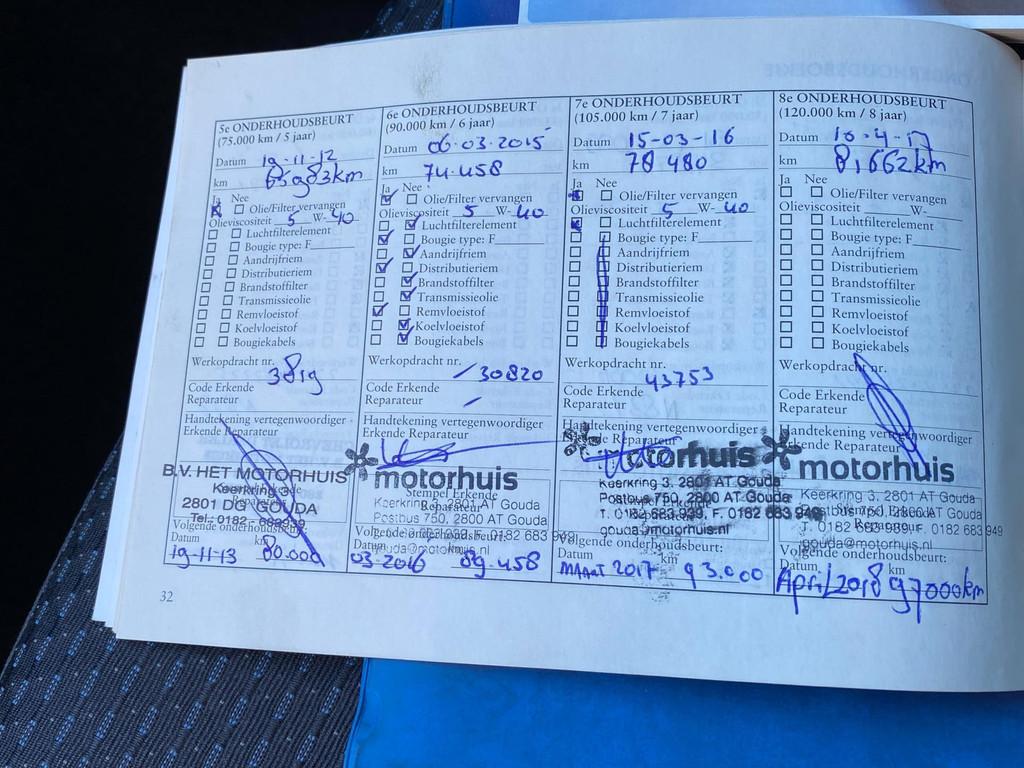 5e ONDERHOUDSBEURT
(75.000 km / 5 jaar)
Datum 19-11-12
km 65983km
Ja Nee
Olie/Filter vervangen
Olieviscositeit 5 W-40
Luchtfilterelement
Bougie type: F
Aandrijfriem
Distributieriem
Brandstoffilter
Transmissieolie
Remvloeistof
Koelvloeistof
Bougiekabels
Werkopdracht nr.
3819
Code Erkende
Reparateur
Handtekening vertegenwoordiger
Erkende Reparateur
B.V. HET MOTORHUIS
Keerkring 3
2801 DG GOUDA
Tel.: 0182 -
Volgende onderhoudsbeurt:
Datum km
19-11-13 80.000
6e ONDERHOUDSBEURT
(90.000 km / 6 jaar)
Datum 06-03-2015
km 74.458
Ja Nee
Olie/Filter vervangen
Olieviscositeit 5 W-40
Luchtfilterelement
Bougie type: F
Aandrijfriem
Distributieriem
Brandstoffilter
Transmissieolie
Remvloeistof
Koelvloeistof
Bougiekabels
Werkopdracht nr.
30820
Code Erkende
Reparateur
Handtekening vertegenwoordiger
Erkende Reparateur
motorhuis
Stempel Erkende
Reparateur
Keerkring 3, 2801 AT Gouda
Postbus 750, 2800 AT Gouda
gouda@motorhuis.nl
Volgende onderhoudsbeurt:
Datum km
03-2016 89.458
7e ONDERHOUDSBEURT
(105.000 km / 7 jaar)
Datum 15-03-16
km 78480
Ja Nee
Olie/Filter vervangen
Olieviscositeit 5 W-40
Luchtfilterelement
Bougie type: F
Aandrijfriem
Distributieriem
Brandstoffilter
Transmissieolie
Remvloeistof
Koelvloeistof
Bougiekabels
Werkopdracht nr.
43753
Code Erkende
Reparateur
Handtekening vertegenwoordiger
Erkende Reparateur
motorhuis
Keerkring 3, 2801 AT Gouda
Postbus 750, 2800 AT Gouda
T. 0182 683 939, F. 0182 683 949
gouda@motorhuis.nl
Volgende onderhoudsbeurt:
Datum km
MAART 2017 93.000
8e ONDERHOUDSBEURT
(120.000 km / 8 jaar)
Datum 10-4-17
km 81,662km
Ja Nee
Olie/Filter vervangen
Olieviscositeit W-
Luchtfilterelement
Bougie type: F
Aandrijfriem
Distributieriem
Brandstoffilter
Transmissieolie
Remvloeistof
Koelvloeistof
Bougiekabels
Werkopdracht nr.
Code Erkende
Reparateur
Handtekening vertegenwoordiger
Erkende Reparateur
motorhuis
Keerkring 3, 2801 AT Gouda
Postbus 750, 2800 AT Gouda
T. 0182 683 939, F. 0182 683 949
gouda@motorhuis.nl
Volgende onderhoudsbeurt:
Datum km
April 2018 97000km
32